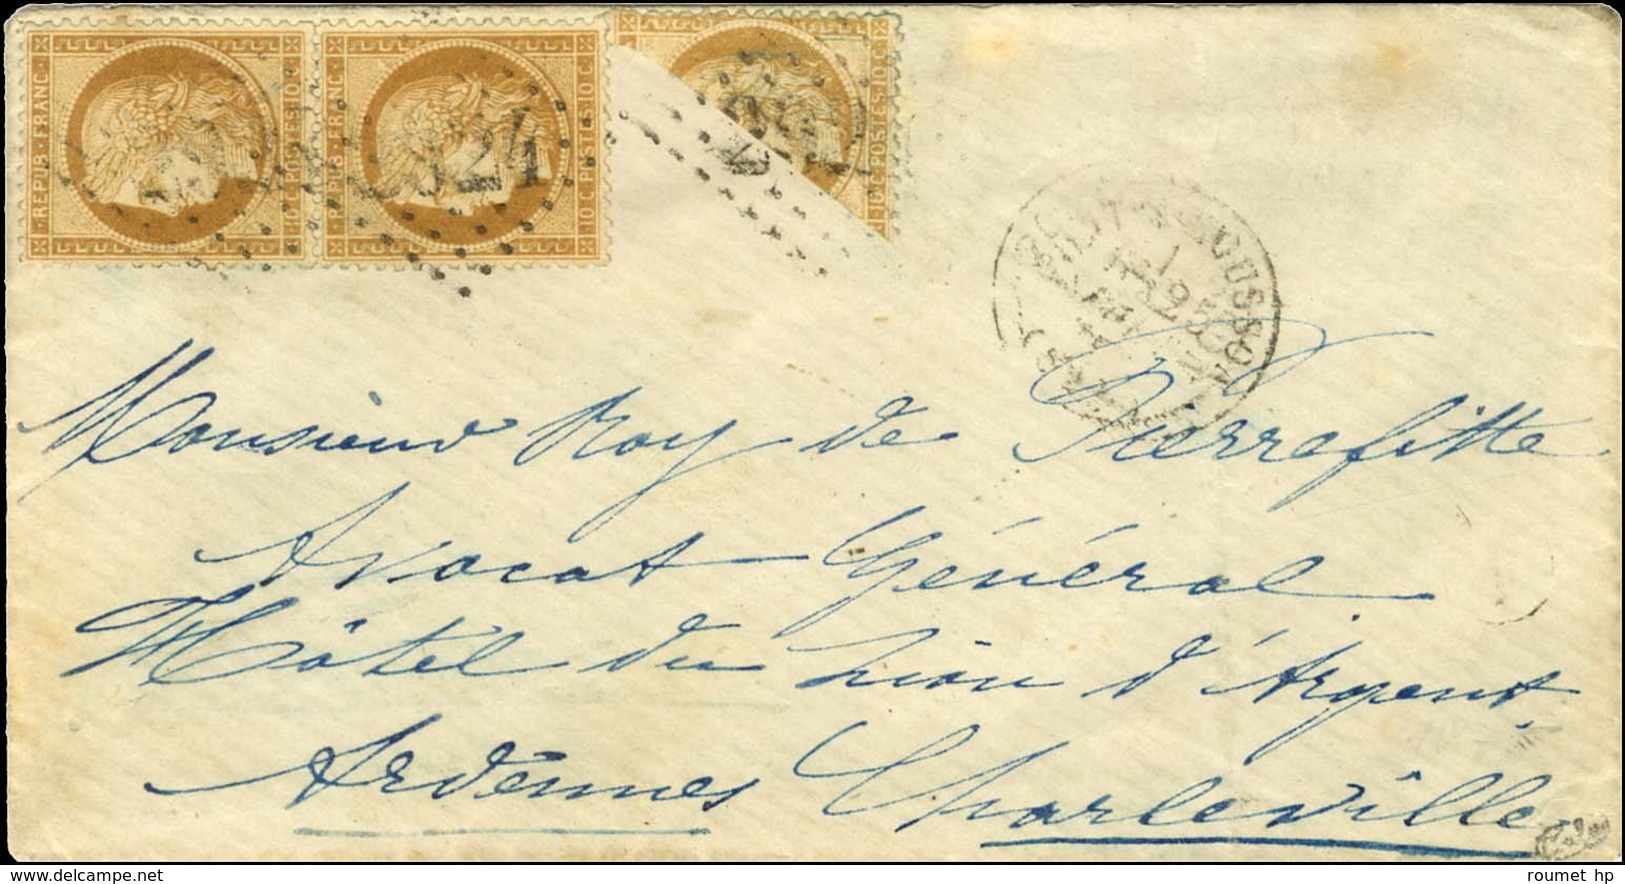 REPUB·FRANC·
10 C·POSTES·10 C·
REPUB·FRANC·
10 C·POSTES·10 C·
10 C·POSTES·10 C·
24
Monsieur Roy de Pierrefitte
Avocat Général
Hôtel du Lion d'Argent
Ardennes Charleville
roumet hp